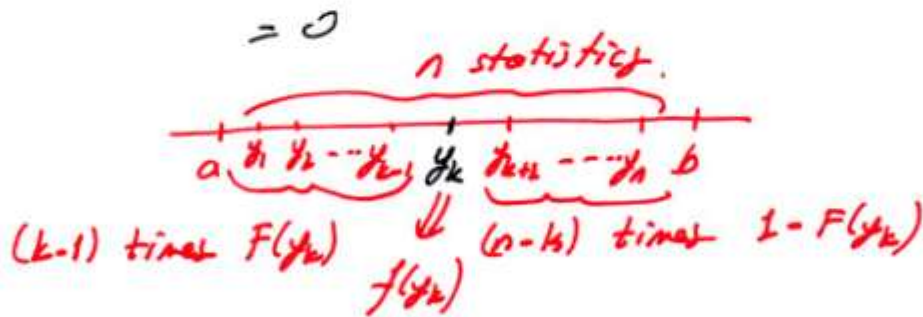 = 0
n statistics.
a y₁ y₂ ---- yₖ₋₁ yₖ yₖ₊₁ ---- yₙ b
(k-1) times F(yₖ) ⇓ (n-k) times 1 - F(yₖ)
f(yₖ)